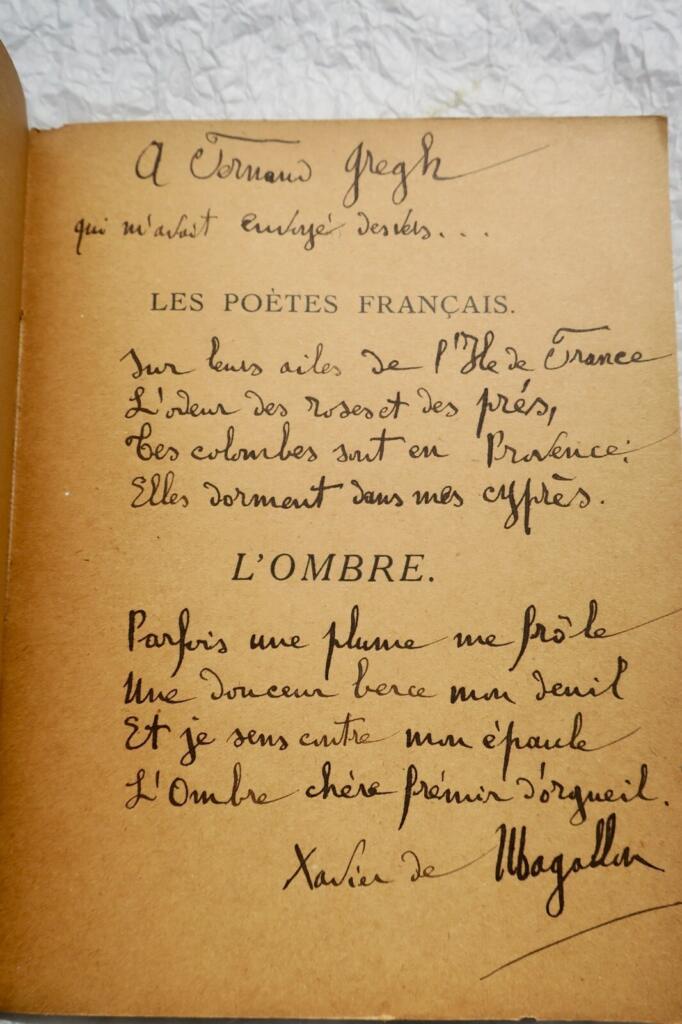 A Fernand Gregh
qui m'avait envoyé des vers...
LES POÈTES FRANÇAIS.
Sur leurs ailes de l'Ile de France
L'odeur des roses et des prés,
Tes colombes sont en Provence:
Elles dorment dans mes cyprès.
L'OMBRE.
Parfois une plume me frôle
Une douceur berce mon deuil
Et je sens contre mon épaule
L'Ombre chère frémir d'orgueil.
Xavier de Magallon